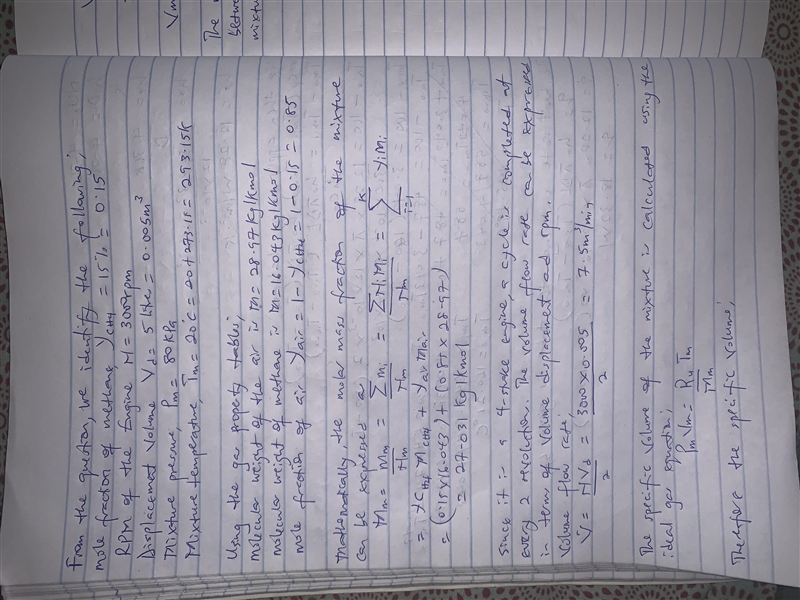 From the question, we identify the following;
mole fraction of methane, yCH4 = 15% = 0.15
RPM of the Engine N = 3000rpm
Displacement volume Vd = 5 litre = 0.005m³
Mixture pressure, Pm = 80kPa
Mixture temperature, Tm = 20°C = 20+273.15 = 293.15K
Using the gas property tables;
molecular weight of the air is m = 28.97 Kg/Kmol
molecular weight of methane is m = 16.043 Kg/Kmol
mole fraction of air yair = 1 - yCH4 = 1 - 0.15 = 0.85
Mathematically, the molar mass fraction of the mixture
can be expressed as
Mm = mm/Nm = Σmi/Nm = ΣNiMi/Nm = Σ(i=1 to k) yiMi
= yCH4 MCH4 + yair Mair
= (0.15×16.043) + (0.85 × 28.97)
= 27.031 kg/kmol
Since it is a 4-stroke engine, a cycle is completed at
every 2 revolution. The volume flow rate can be expressed
in term of volume displacement and rpm.
Volume flow rate,
V̇ = NVd/2 = (3000 × 0.005)/2 = 7.5m³/min
The specific volume of the mixture is calculated using the
ideal gas equation;
Pm Vm = Ru Tm/Mm
Therefore the specific volume;
Vm
The
betwe
mixtur